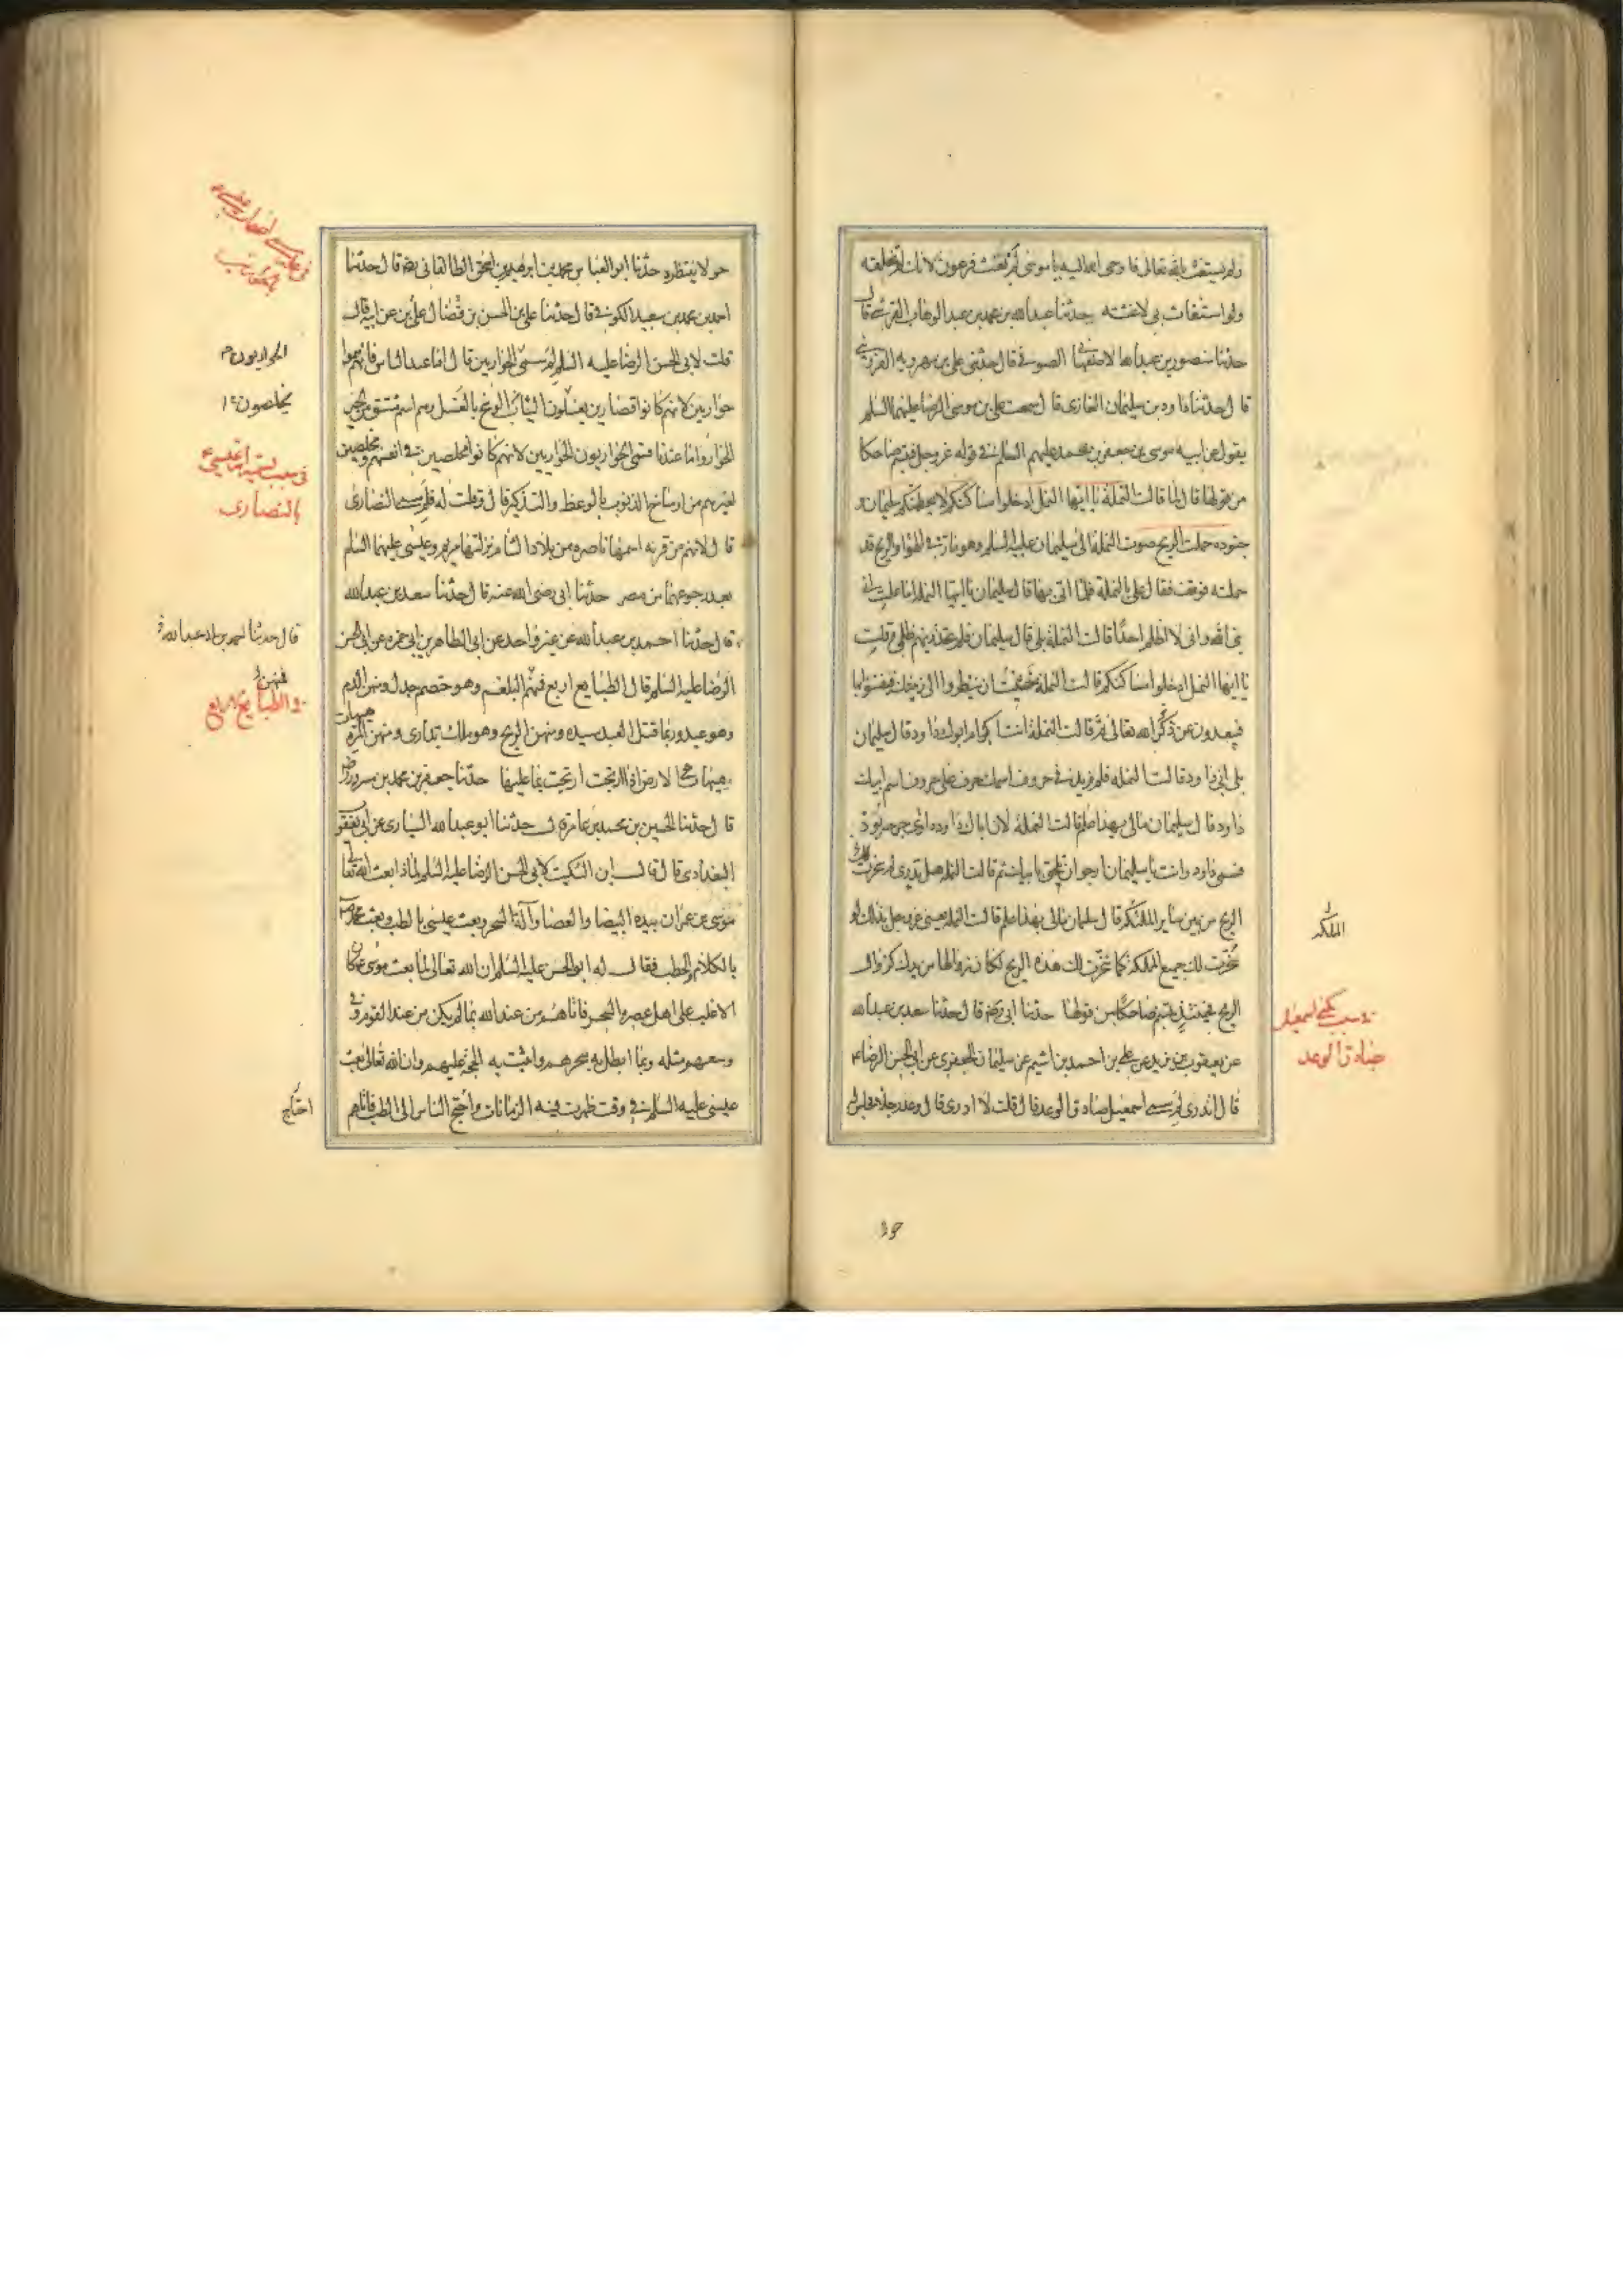 ولم يستغث بالله تعالى فاوحى الله اليه يا موسى لم تغث فرعون لانك لم تخلقه
ولو استغاث بى لاغثته حدثنا عبدالله بن محمد بن عبد الوهاب القرشى قال
حدثنا منصور بن عبدالله الاصفهانى الصوفى قال حدثنى على بن مهرويه القزوينى
قال حدثنا داود بن سليمان الغازى قال سمعت على بن موسى الرضا عليهما السلم
يقول عن ابيه موسى بن جعفر بن محمد عليهم السلم فى قوله عز وجل فتبسم ضاحكا
من قولها قال لما قالت النملة يا ايها النمل ادخلوا مساكنكم لا يحطمنكم سليمان و
جنوده حملت الريح صوت النملة الى سليمان عليه السلم وهو مار فى الهواء والريح قد
حملته فوقف فقال على بالنملة فلما اتى بها قال سليمان يا ايتها النملة اما علمت انى
نبى الله وانى لا اظلم احدا قالت النملة بلى قال سليمان فلم حذرتنهم ظلمى وقلت
يا ايها النمل ادخلوا مساكنكم قالت النملة خشيت ان ينظروا الى زينتك فيفتنوا بها
فيبعدون عن ذكر الله تعالى ثم قالت النملة انت اكبر ام ابوك داود قال سليمان
بلى ابى داود قالت النملة فلم زيد فى حروف اسمك حرف على حروف اسم ابيك
داود قال سليمان مالى بهذا علم قالت النملة لان اباك داود داوى جرحه بود
فسمى داود وانت يا سليمان ارجو ان تلحق بابيك ثم قالت النملة هل تدرى لم سخرت لك
الريح من بين ساير المملكة قال سليمان مالى بهذا علم قالت النملة يعنى عز وجل بذلك لو
سخرت لك جميع المملكة كما سخرت لك هذه الريح لكان زوالها من يدك كزوال
الريح فحينئذ تبسم ضاحكا من قولها حدثنا ابى رضه قال حدثنا سعد بن عبدالله
عن يعقوب بن يزيد عن على بن احمد بن اشيم عن سليمان الجعفرى عن ابى الحسن الرضا ع
قال اتدرى لم سمى اسمعيل صادق الوعد قال قلت لا ادرى قال وعد رجلا فجلس له
المملكة
فى سبب تسمية اسمعيل
صادق الوعد
حولا
حولا ينتظره حدثنا ابو العباس محمد بن ابرهيم بن اسحق الطالقانى رضه قال حدثنا
احمد بن محمد بن سعيد الكوفى قال حدثنا على بن الحسن بن فضال عن ابيه قال
قلت لابى الحسن الرضا عليه السلم لم سمى الحواريين قال اما عند الناس فانهم سموا
حواريين لانهم كانوا قصارين يغسلون الثياب من الوسخ بالغسل وهو اسم مشتق من الخبز
الحوار واما عندنا فسمى الحواريون الحواريين لانهم كانوا مخلصين فى انفسهم ومخلصين
لغيرهم من اوساخ الذنوب بالوعظ والتذكير قال وقلت له فلم سمى النصارى
قال لانهم من قرية اسمها ناصرة من بلاد الشام نزلتها مريم وعيسى عليهما السلم
بعد رجوعهما من مصر حدثنا ابى رضى الله عنه قال حدثنا سعد بن عبدالله
قال حدثنا احمد بن عبدالله عن غير واحد عن ابى الطاهر بن ابى حمزه عن ابى الحسن
الرضا عليه السلم قال الطبايع اربع فمنهم البلغم وهو خصم جدل ومنهن الدم
وهو عبد وربما قتل العبد سيده ومنهن الريح وهو ملك يدارى ومنهن المرة
هيهات هى الارض اذا ارتجت ارتجت بما عليها حدثنا جعفر بن محمد بن مسرور رضه
قال حدثنا الحسين بن محمد بن عامر قال حدثنا ابو عبدالله السيارى عن ابى يعقوب
البغدادى قال قال ابن السكيت لابى الحسن الرضا عليه السلم لماذا بعث الله تعالى
موسى بن عمران بيده البيضا والعصا وآلة السحر وبعث عيسى بالطب وبعث محمدا ص
بالكلام والخطب فقال له ابو الحسن عليه السلم ان الله تعالى لما بعث موسى ع كان
الاغلب على اهل عصره السحر فاتاهم من عند الله بما لم يكن من عند القوم وفى
وسعهم مثله وبما ابطل به سحرهم واثبت به الحجة عليهم وان الله تعالى بعث
عيسى عليه السلم فى وقت ظهرت فيه الزمانات واحتج الناس الى الطب فاتاهم
الحواريون
مخلصون
فى سبب تسمية امة عيسى ع
بالنصارى
فمنهن
فى الطبايع الاربع
احتاج